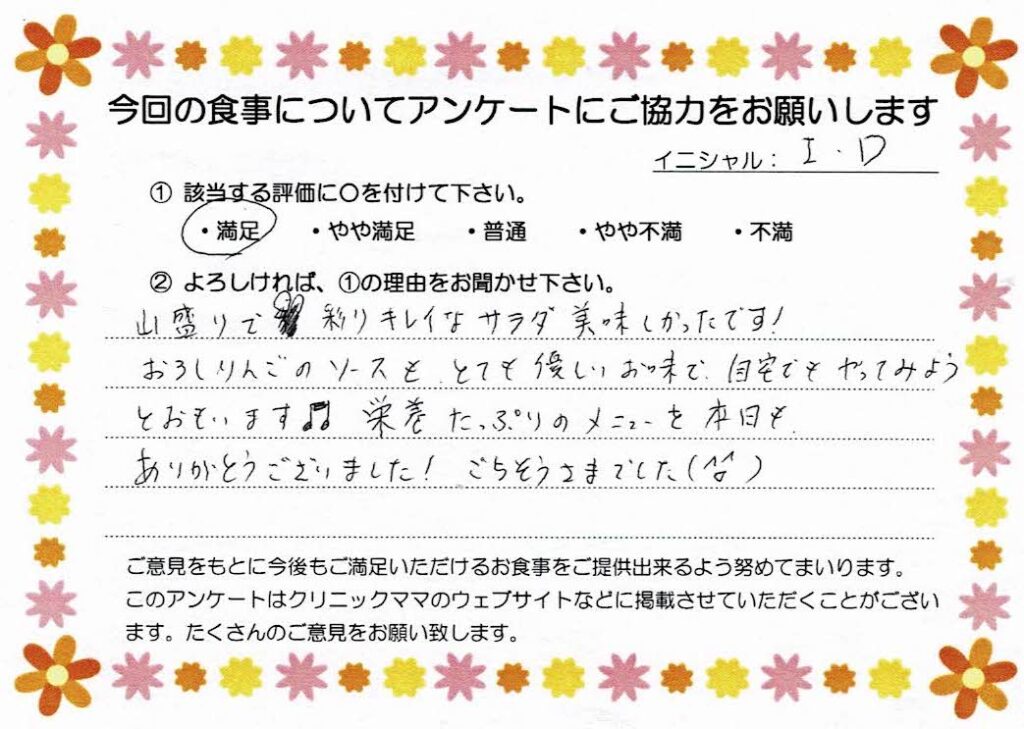 今回の食事についてアンケートにご協力をお願いします
イニシャル： I・D
① 該当する評価に〇を付けて下さい。
・満足 ・やや満足 ・普通 ・やや不満 ・不満
② よろしければ、①の理由をお聞かせ下さい。
山盛りで 彩りキレイなサラダ美味しかったです!
おろしりんごのソースも、とても優しいお味で、自宅でもやってみよう
とおもいます♫ 栄養たっぷりのメニューを本日も、
ありがとうございました! ごちそうさまでした(^^)
ご意見をもとに今後もご満足いただけるお食事をご提供出来るよう努めてまいります。
このアンケートはクリニックママのウェブサイトなどに掲載させていただくことがござい
ます。たくさんのご意見をお願い致します。